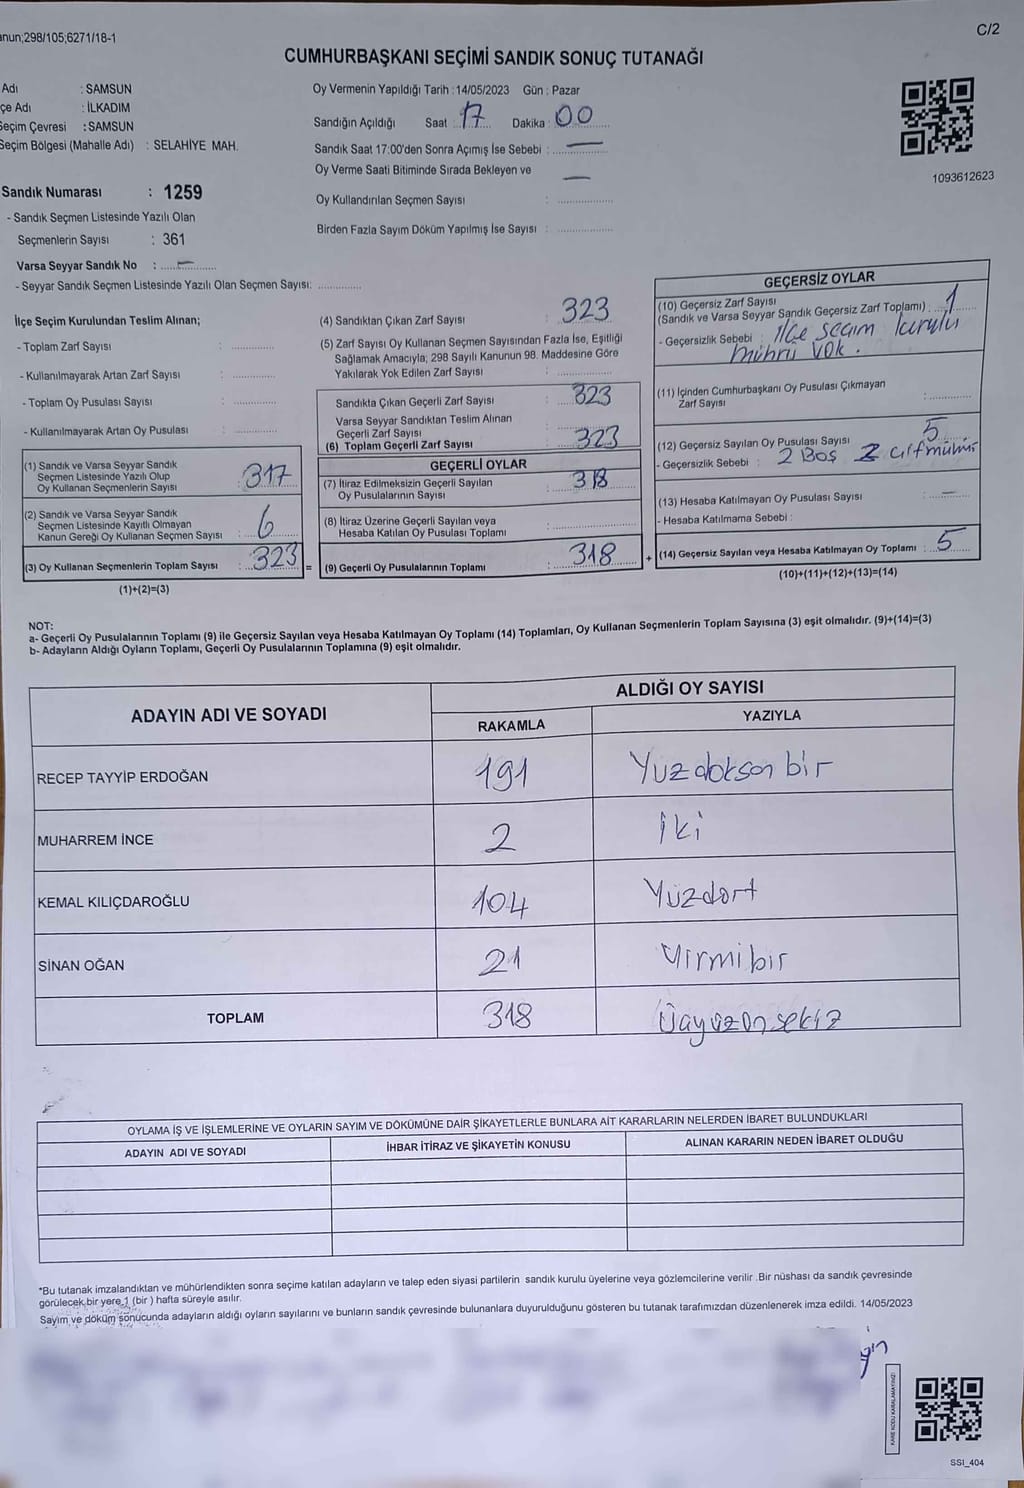 anun;298/105;6271/18-1
C/2
CUMHURBAŞKANI SEÇİMİ SANDIK SONUÇ TUTANAĞI
Adı : SAMSUN
çe Adı : İLKADIM
Seçim Çevresi : SAMSUN
Seçim Bölgesi (Mahalle Adı) : SELAHİYE MAH.
Sandık Numarası : 1259
- Sandık Seçmen Listesinde Yazılı Olan
Seçmenlerin Sayısı : 361
Varsa Seyyar Sandık No : —
- Seyyar Sandık Seçmen Listesinde Yazılı Olan Seçmen Sayısı: ..............
Oy Vermenin Yapıldığı Tarih : 14/05/2023 Gün : Pazar
Sandığın Açıldığı Saat : 17 Dakika : 00
Sandık Saat 17:00'den Sonra Açımış İse Sebebi : —
Oy Verme Saati Bitiminde Sırada Bekleyen ve —
Oy Kullandırılan Seçmen Sayısı : ..................
Birden Fazla Sayım Döküm Yapılmış İse Sayısı : ..................
1093612623
İlçe Seçim Kurulundan Teslim Alınan;
- Toplam Zarf Sayısı : ..............
- Kullanılmayarak Artan Zarf Sayısı : ..............
- Toplam Oy Pusulası Sayısı : ..............
- Kullanılmayarak Artan Oy Pusulası : ..............
(1) Sandık ve Varsa Seyyar Sandık
Seçmen Listesinde Yazılı Olup
Oy Kullanan Seçmenlerin Sayısı : 317
(2) Sandık ve Varsa Seyyar Sandık
Seçmen Listesinde Kayıtlı Olmayan
Kanun Gereği Oy Kullanan Seçmen Sayısı : 6
(3) Oy Kullanan Seçmenlerin Toplam Sayısı : 323 =
(1)+(2)=(3)
(4) Sandıktan Çıkan Zarf Sayısı : 323
(5) Zarf Sayısı Oy Kullanan Seçmen Sayısından Fazla İse, Eşitliği
Sağlamak Amacıyla; 298 Sayılı Kanunun 98. Maddesine Göre
Yakılarak Yok Edilen Zarf Sayısı : ..............
Sandıkta Çıkan Geçerli Zarf Sayısı : 323
Varsa Seyyar Sandıktan Teslim Alınan
Geçerli Zarf Sayısı : ..............
(6) Toplam Geçerli Zarf Sayısı : 323
GEÇERLİ OYLAR
(7) İtiraz Edilmeksizin Geçerli Sayılan
Oy Pusulalarının Sayısı : 318
(8) İtiraz Üzerine Geçerli Sayılan veya
Hesaba Katılan Oy Pusulası Toplamı : ..............
(9) Geçerli Oy Pusulalarının Toplamı : 318 +
GEÇERSİZ OYLAR
(10) Geçersiz Zarf Sayısı
(Sandık ve Varsa Seyyar Sandık Geçersiz Zarf Toplamı) : 1
- Geçersizlik Sebebi : ilçe seçim kurulu
mührü yok.
(11) İçinden Cumhurbaşkanı Oy Pusulası Çıkmayan
Zarf Sayısı : ..............
(12) Geçersiz Sayılan Oy Pusulası Sayısı : 5
- Geçersizlik Sebebi : 2 Boş 2 çift mühür
(13) Hesaba Katılmayan Oy Pusulası Sayısı : —
- Hesaba Katılmama Sebebi :
(14) Geçersiz Sayılan veya Hesaba Katılmayan Oy Toplamı : 5
(10)+(11)+(12)+(13)=(14)
NOT:
a- Geçerli Oy Pusulalarının Toplamı (9) ile Geçersiz Sayılan veya Hesaba Katılmayan Oy Toplamı (14) Toplamları, Oy Kullanan Seçmenlerin Toplam Sayısına (3) eşit olmalıdır. (9)+(14)=(3)
b- Adayların Aldığı Oyların Toplamı, Geçerli Oy Pusulalarının Toplamına (9) eşit olmalıdır.
ADAYIN ADI VE SOYADI
ALDIĞI OY SAYISI
RAKAMLA YAZIYLA
RECEP TAYYİP ERDOĞAN 191 Yüzdoksan bir
MUHARREM İNCE 2 İki
KEMAL KILIÇDAROĞLU 104 Yüzdört
SİNAN OĞAN 21 Yirmibir
TOPLAM 318 Üçyüzonsekiz
OYLAMA İŞ VE İŞLEMLERİNE VE OYLARIN SAYIM VE DÖKÜMÜNE DAİR ŞİKAYETLERLE BUNLARA AİT KARARLARIN NELERDEN İBARET BULUNDUKLARI
ADAYIN ADI VE SOYADI İHBAR İTİRAZ VE ŞİKAYETİN KONUSU ALINAN KARARIN NEDEN İBARET OLDUĞU
*Bu tutanak imzalandıktan ve mühürlendikten sonra seçime katılan adayların ve talep eden siyasi partilerin sandık kurulu üyelerine veya gözlemcilerine verilir .Bir nüshası da sandık çevresinde
görülecek bir yere 1 (bir ) hafta süreyle asılır.
Sayım ve döküm sonucunda adayların aldığı oyların sayılarını ve bunların sandık çevresinde bulunanlara duyurulduğunu gösteren bu tutanak tarafımızdan düzenlenerek imza edildi. 14/05/2023
KARE KODU KARALAMAYINIZ!
SSI_404